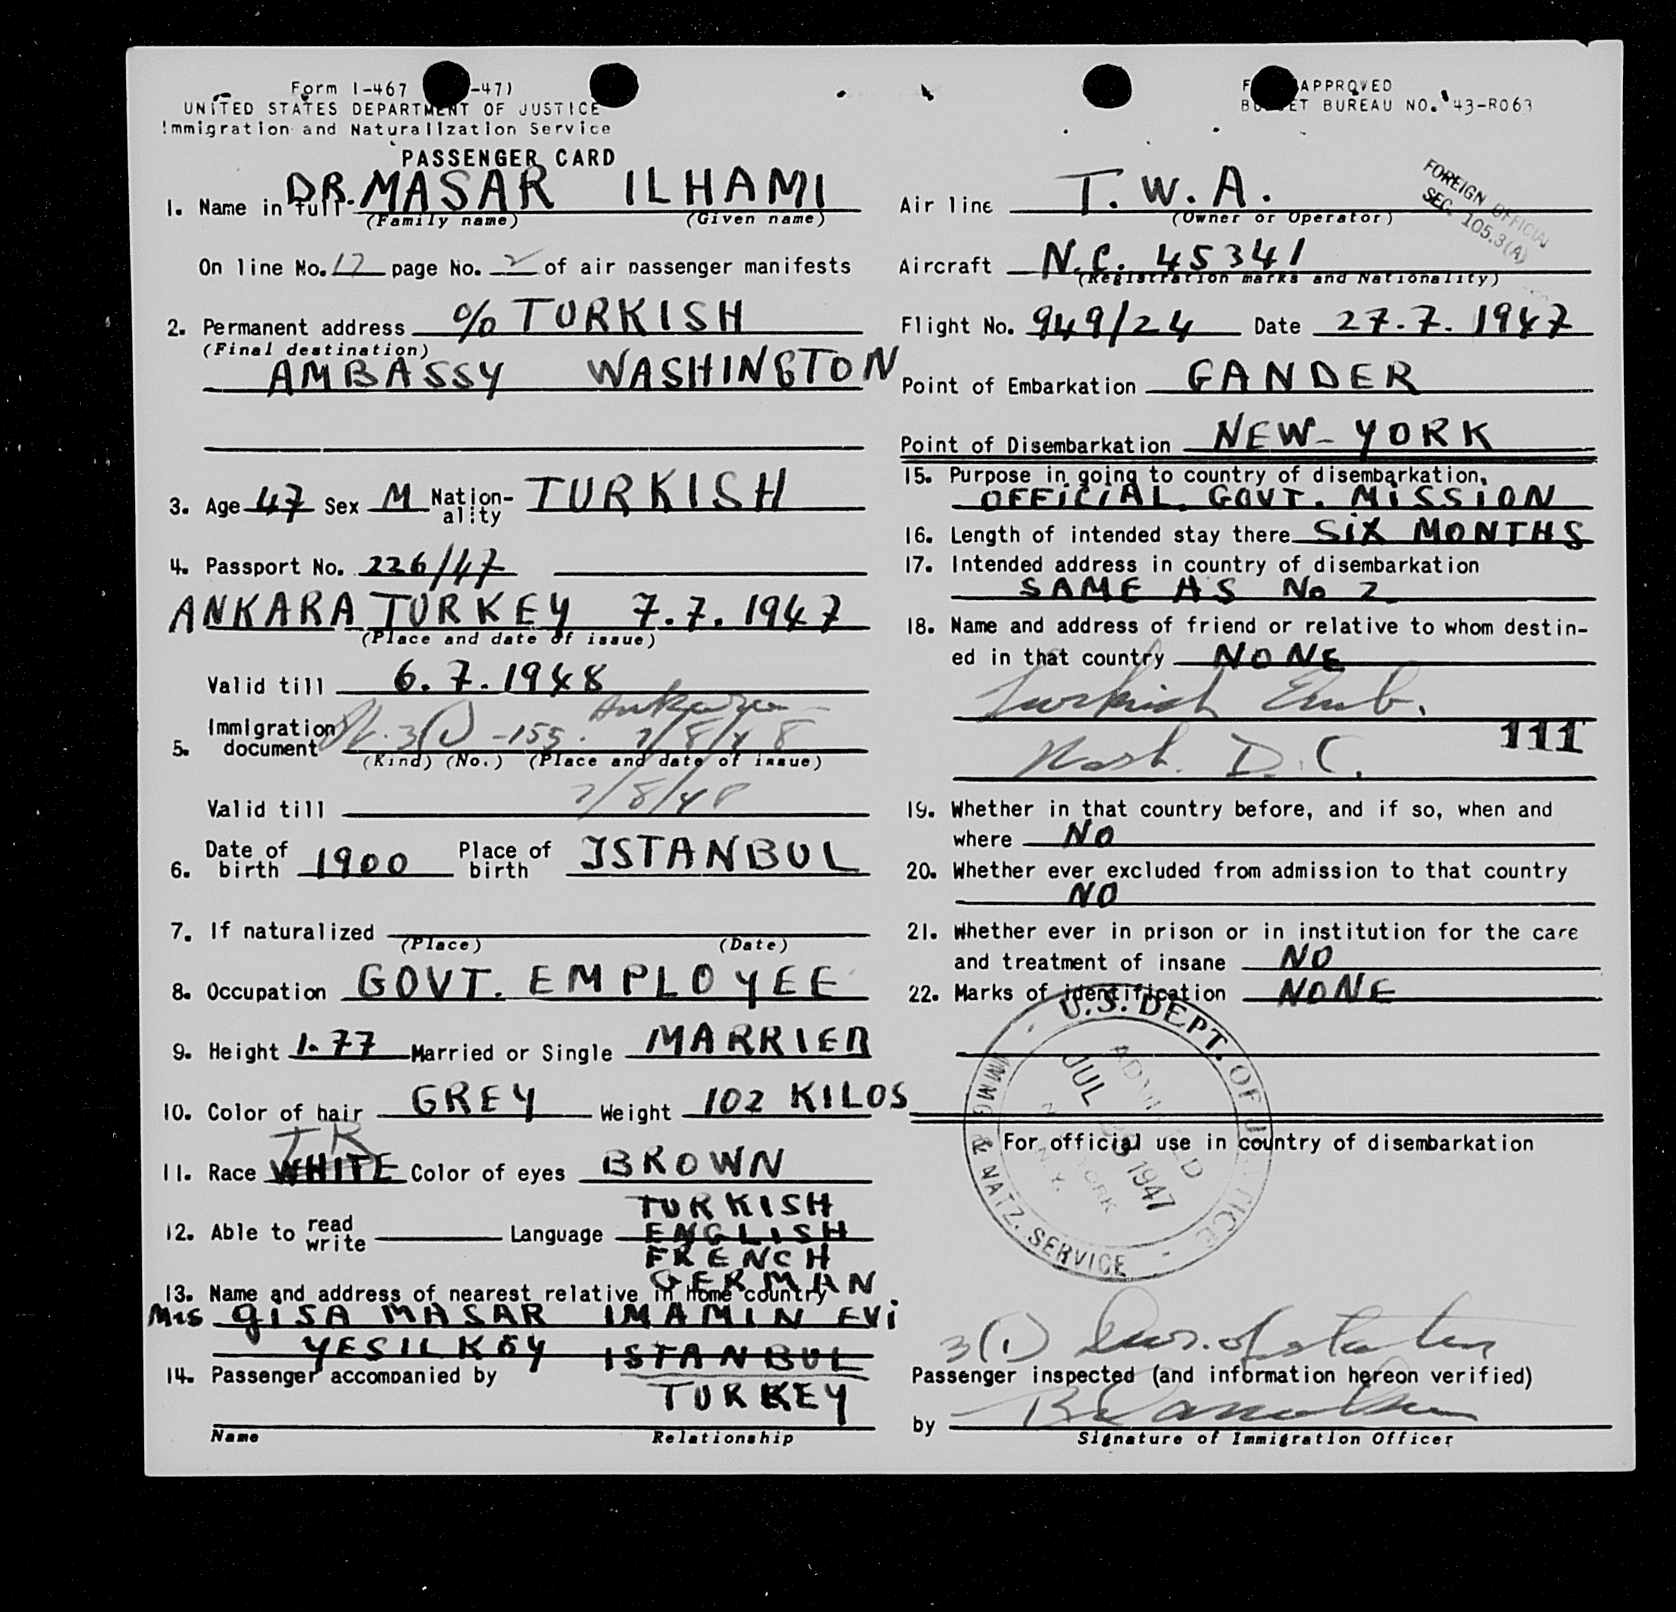 Form I-467 -47)
UNITED STATES DEPARTMENT OF JUSTICE
Immigration and Naturalization Service
PASSENGER CARD
1. Name in full DR. MASAR ILHAMI
(Family name) (Given name)
On line No. 17 page No. 2 of air passenger manifests
2. Permanent address % TURKISH
(Final destination)
AMBASSY WASHINGTON
3. Age 47 Sex M Nation-ality TURKISH
4. Passport No. 226/47
ANKARA TURKEY 7.7.1947
(Place and date of issue)
Valid till 6.7.1948
Ankara
5. Immigration document 3(1) -155. 7/8/48
(Kind) (No.) (Place and date of issue)
Valid till 7/8/48
6. Date of birth 1900 Place of birth ISTANBUL
7. If naturalized
(Place) (Date)
8. Occupation GOVT. EMPLOYEE
9. Height 1.77 Married or Single MARRIED
10. Color of hair GREY Weight 102 KILOS
TK
11. Race WHITE Color of eyes BROWN
12. Able to read write Language TURKISH
ENGLISH
FRENCH
GERMAN
13. Name and address of nearest relative in home country
Mrs GISA MASAR IMAMIN EVi
YESILKÖY ISTANBUL
14. Passenger accompanied by
TURKEY
Name Relationship
F APPROVED
BUDGET BUREAU NO. 43-R063
FOREIGN OFFICIAL
SEC. 105.3(A)
Air line T.W.A.
(Owner or Operator)
Aircraft N.C. 45341
(Registration marks and Nationality)
Flight No. 949/24 Date 27.7.1947
Point of Embarkation GANDER
Point of Disembarkation NEW-YORK
15. Purpose in going to country of disembarkation,
OFFICIAL GOVT. MISSION
16. Length of intended stay there SIX MONTHS
17. Intended address in country of disembarkation
SAME AS No 2
18. Name and address of friend or relative to whom destin-
ed in that country NONE
Turkish Emb.
111
Wash. D.C.
19. Whether in that country before, and if so, when and
where NO
20. Whether ever excluded from admission to that country
NO
21. Whether ever in prison or in institution for the care
and treatment of insane NO
22. Marks of identification NONE
U.S. DEPT. OF JUSTICE
IMMG & NATZ. SERVICE
ADMITTED
JUL 1947
NEW YORK
N.Y.
For official use in country of disembarkation
3(1) Dur. of status
Passenger inspected (and information hereon verified)
by
Signature of Immigration Officer